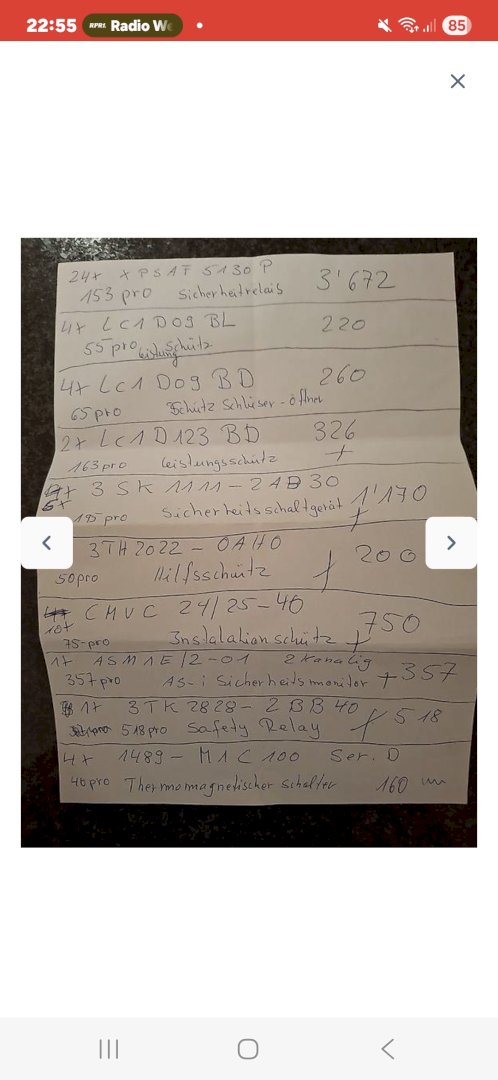 22:55 RPR1. Radio We 85
24x XPSAF 5130 P 3'672
153 pro Sicherheitrelais
4x LC1 D09 BL 220
55 pro Leistung Schütz
4x LC1 D09 BD 260
65 pro Schütz Schliser-öffner
2x LC1 D123 BD 326
163 pro Leistungsschütz +
6x 3 SK 1111 - 2AB30 1'170
195 pro Sicherheitsschaltgerät +
3TH2022 - 0AH0 200
50 pro Hilfsschütz +
10x CMVC 24/25-40 750
75-pro Instalationschütz +
1x ASM1E/2-01 2 Kanalig
357 pro AS-i Sicherheitsmonitor + 357
1x 3TK 2828-2BB40 518
518 pro Safety Relay +
4x 1489-M1C100 Ser. D
40 pro Thermomagnetischer Schalter 160